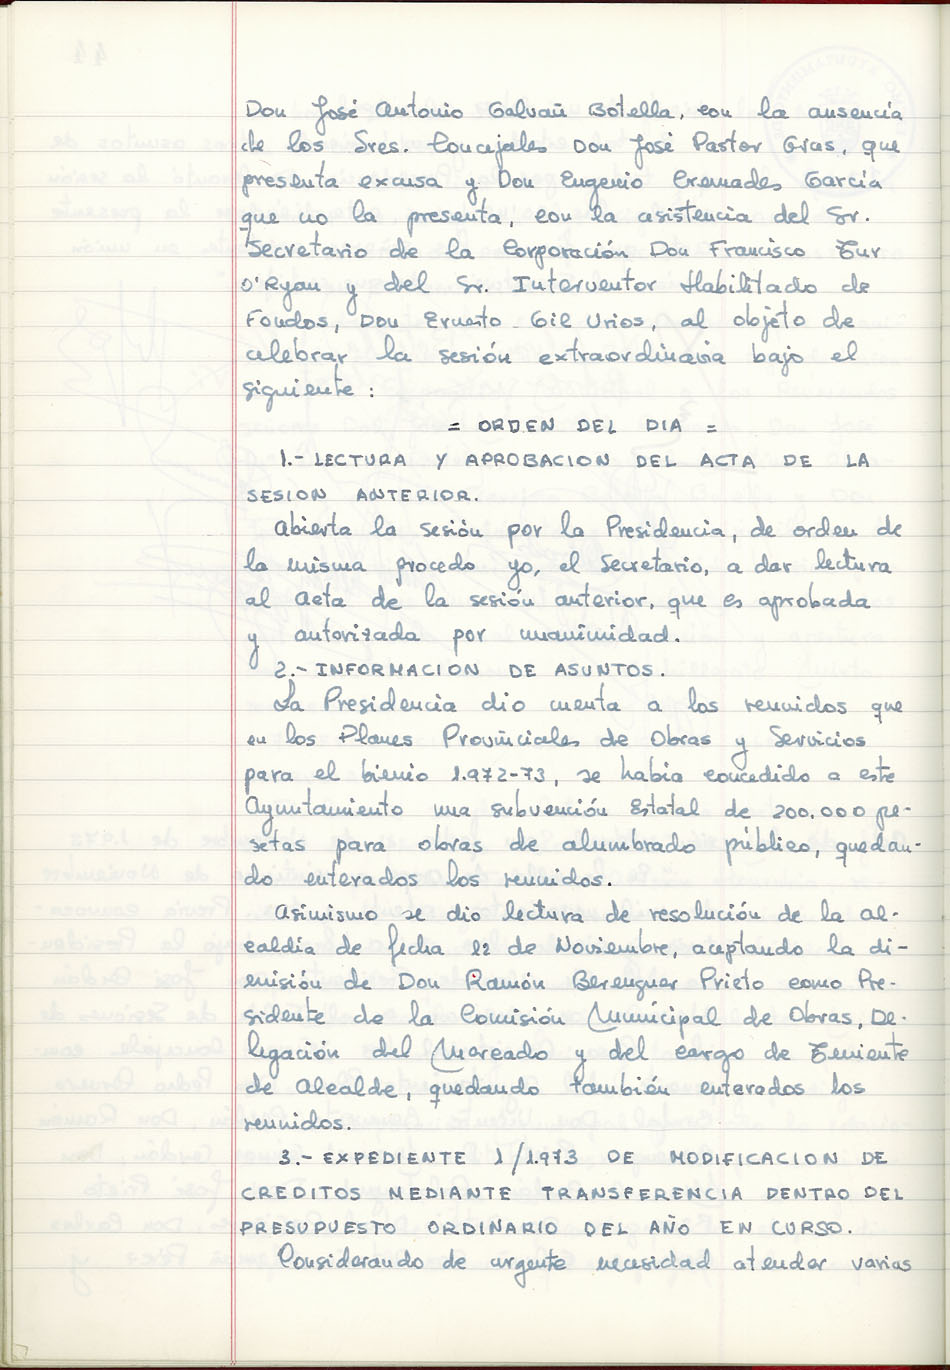 Don José Antonio Galvañ Botella, con la ausencia
de los Sres. Concejales Don José Pastor Gras, que
presenta excusa y Don Eugenio Cremades García
que no la presenta, con la asistencia del Sr.
Secretario de la Corporación Don Francisco Tur
O'Ryan y del Sr. Interventor Habilitado de
Fondos, Don Ernesto Gil Urios, al objeto de
celebrar la sesión extraordinaria bajo el
siguiente:
= ORDEN DEL DIA =
1.- LECTURA Y APROBACION DEL ACTA DE LA
SESION ANTERIOR.
Abierta la sesión por la Presidencia, de orden de
la misma procedo yo, el Secretario, a dar lectura
al Acta de la sesión anterior, que es aprobada
y autorizada por unanimidad.
2.- INFORMACION DE ASUNTOS.
La Presidencia dio cuenta a los reunidos que
en los Planes Provinciales de Obras y Servicios
para el bienio 1.972-73, se había concedido a este
Ayuntamiento una subvención Estatal de 200.000 pe-
setas para obras de alumbrado público, quedan-
do enterados los reunidos.
Asimismo se dio lectura de resolución de la al-
caldía de fecha 12 de Noviembre, aceptando la di-
misión de Don Ramón Berenguer Prieto como Pre-
sidente de la Comisión Municipal de Obras, De-
legación del Mercado y del cargo de Teniente
de Alcalde, quedando también enterados los
reunidos.
3.- EXPEDIENTE 1/1.973 DE MODIFICACION DE
CREDITOS MEDIANTE TRANSFERENCIA DENTRO DEL
PRESUPUESTO ORDINARIO DEL AÑO EN CURSO.
Considerando de urgente necesidad atender varias